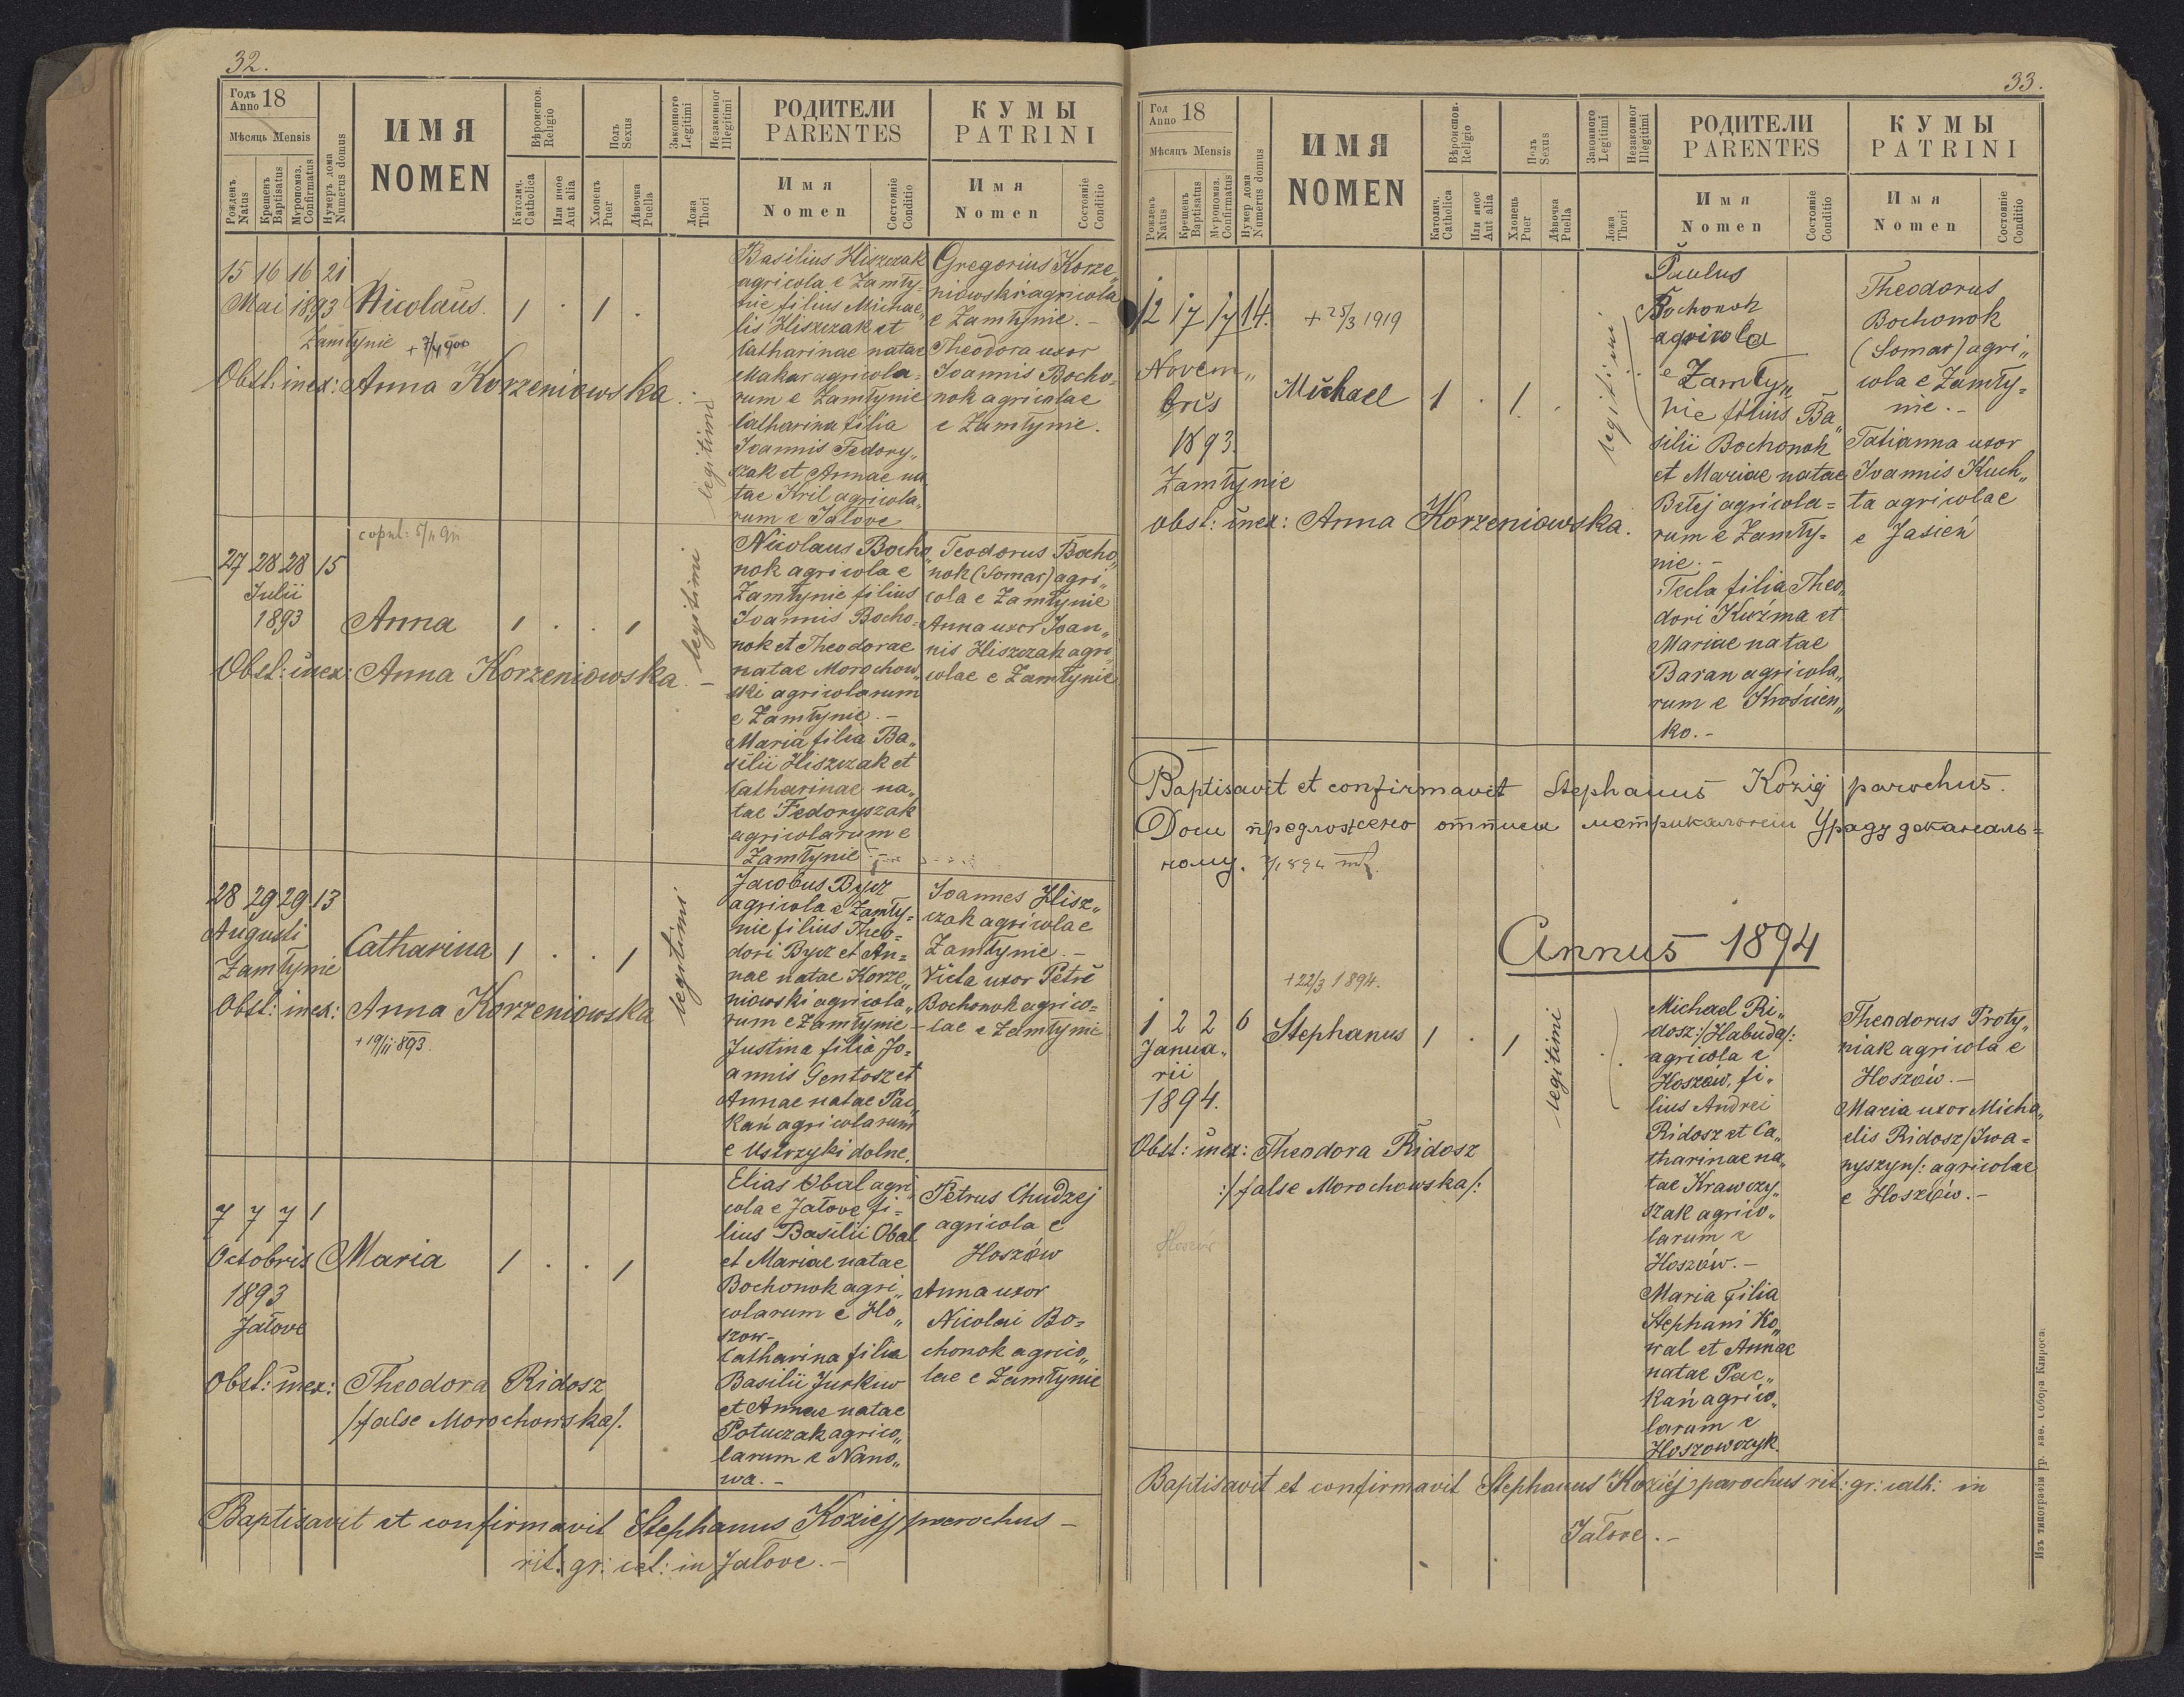 32.
Годъ
Anno 18
Мѣсяць Mensis
Рожденъ
Natus
Крещенъ
Baptisatus
Мѵропомаз.
Confirmatus
Нумеръ дома
Numerus domus
ИМЯ
NOMEN
Вѣроиспов.
Religio
Католич.
Catholica
Или иное
Aut alia
Полъ
Sexus
Хлопецъ
Puer
Дѣвочка
Puella
Законного
Legitimi
Незаконног
Illegitimi
Ложа
Thori
РОДИТЕЛИ
PARENTES
Имя
Nomen
Состояніе
Conditio
КУМЫ
PATRINI
Имя
Nomen
Состояніе
Conditio
15 16 16 21
Mai 1893 Nicolaus. 1 . 1 .
Zamłynie + 7/4 900
Obst: inex: Anna Korzeniowska.
legitimi
Basilius Hliszczak
agricola e Zamły-
nie filius Michae„
lis Hliszczak et
Catharinae natae
Makar agricola-
rum e Zamłynie
Catharina filia
Joannis Fedory„
szak et Annae na
tae Kril agricola„
rum e Jałove
Gregorius Korze„
niowski agricola
e Zamłynie. -
Theodora uxor
Joannis Bocho-
nok agricolae
e Zamłynie.
copul: 5/11 911
27 28 28 15
Julii
1893
Anna 1 . . 1
Obst: inex: Anna Korzeniowska. -
legitimi
Nicolaus Bocho„
nok agricola e
Zamłynie filius
Joannis Bocho-
nok et Theodorae
natae Morochow„
ski agricolarum
e Zamłynie. -
Maria filia Ba„
silii Hliszczak et
Catharinae na„
tae Fedoryszak
agricolarum e
Zamłynie. -
Teodorus Bocho„
nok (Somar) agri„
cola e Zamłynie
Anna uxor Joan„
nis Hliszczak agri„
colae e Zamłynie
28 29 29 13
Augusti
Zamłynie
Catharina 1 . . 1
Obst: inex: Anna Korzeniowska
+ 19/11 893.
legitimi
Jacobus Bycz
agricola e Zamły-
nie filius Theo-
dori Bycz et An-
nae natae Korze„
niowski agricola„
rum e Zamłynie -
Justina filia Jo-
annis Gentosz et
Annae natae Pac„
kań agricolarum
e Ustrzyki dolne.
Joannes Hlisz„
czak agricola e
Zamłynie. -
Victa uxor Petri
Bochonok agrico-
lae e Zamłynie
7 7 7 1
Octobris
1893
Jałove
Maria 1 . . 1
Obst: inex: Theodora Ridosz
/false Morochowska/.
Elias Obal agri„
cola e Jałove fi-
lius Basilii Obal
et Mariae natae
Bochonok agri„
colarum e Ho„
szow-
Catharina filia
Basilii Jurkuw
et Annae natae
Potuczak agrico„
larum e Nano„
wa. -
Petrus Chudzej
agricola e
Hoszów
Anna uxor
Nicolai Bo-
chonok agrico„
lae e Zamłynie
Baptisavit et confirmavit Stephanus Koziej parochus -
rit: gr: cat: in Jałove. -
33.
Год
Anno 18
Мѣсяцъ Mensis
Рожденъ
Natus
Крещенъ
Baptisatus
Мѵропомаз.
Confirmatus
Нумер дома
Numerus domus
ИМЯ
NOMEN
Вѣроиспов.
Religio
Католич.
Catholica
Или иное
Aut alia
Полъ
Sexus
Хлопець
Puer
Дѣвочка
Puella
Законного
Legitimi
Незаконног
Illegitimi
Ложа
Thori
РОДИТЕЛИ
PARENTES
Имя
Nomen
Состояніе
Conditio
КУМЫ
PATRINI
Имя
Nomen
Состояніе
Conditio
12 17 17 14. + 25/3 1919
Novem„
bris
1893.
Zamłynie
Michael 1 . 1 .
obst: inex: Anna Korzeniowska.
legitimi
Paulus
Bochonok
agricola
e Zamły„
nie filius Ba„
silii Bochonok
et Mariae natae
Betej agricola-
rum e Zamły-
nie. -
Tecla filia Theo„
dori Kuźma et
Mariae natae
Baran agricola„
rum e Krościen„
ko. -
Theodorus
Bochonok
(Somar) agri„
cola e Zamły-
nie. -
Tatianna uxor
Joannis Kuch„
ta agricolae
e Jasień
Baptisavit et confirmavit Stephanus Kozig parochus.
Дош предложено отписи матрикальніи Уряду деканаль=
ному.
Annus 1894
+ 22/3 1894.
1 2 2 6
Janua„
rii
1894.
Stephanus 1 . 1
Obst: inex: Theodora Ridosz
:/false Morochowska/:
Hoszów
legitimi
Michael Ri„
dosz:/Habuda/:
agricola e
Hoszów, fi„
lius Andrei
Ridosz et Ca„
tharinae na„
tae Krawczy„
szak agrico„
larum e
Hoszów. -
Maria filia
Stephani Ko„
wal et Annae
natae Pac„
kań agrico„
larum e
Hoszowczyk.
Theodorus Proty„
niak agricola e
Hoszów. -
Maria uxor Micha„
elis Ridosz/Iwa-
nyszyn/: agricolae
e Hoszów. -
Baptisavit et confirmavit Stephanus Koziej parochus rit: gr: cath: in
Jałove. -
Изъ типографіи гр. каѳ. Собора Клироса.